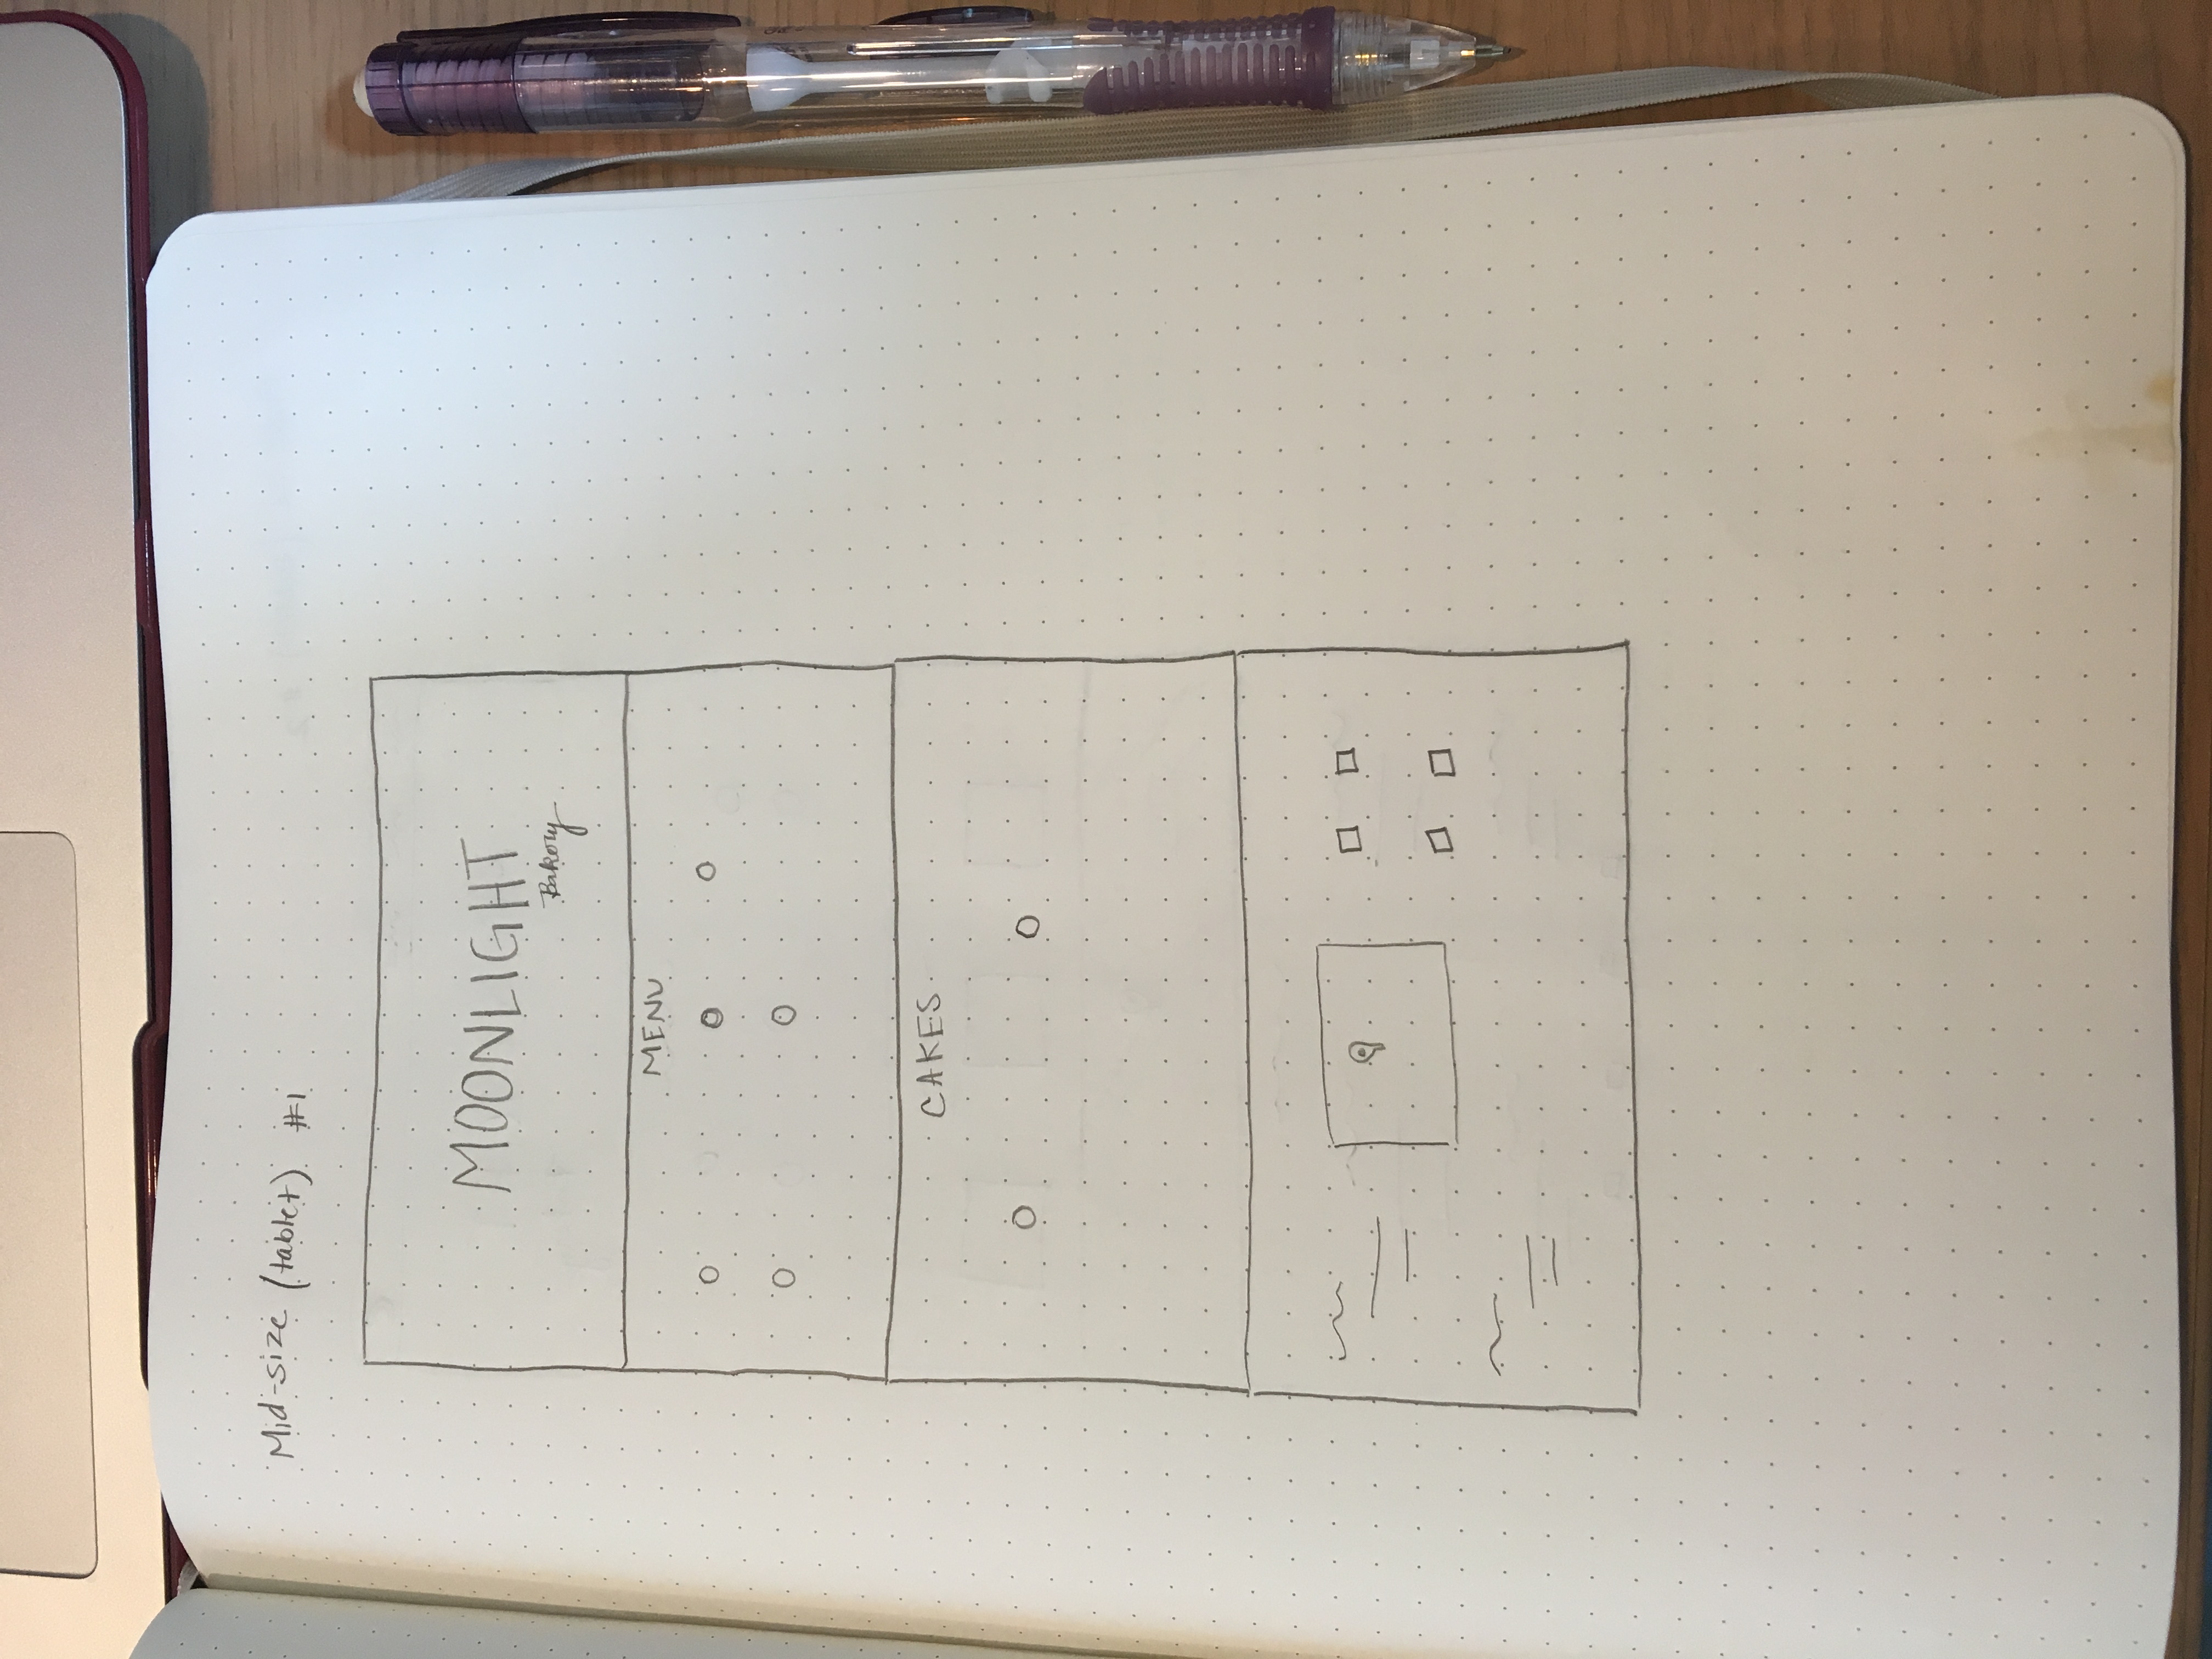 Mid-size (tablet) #1
MOONLIGHT
Bakery
MENU
CAKES